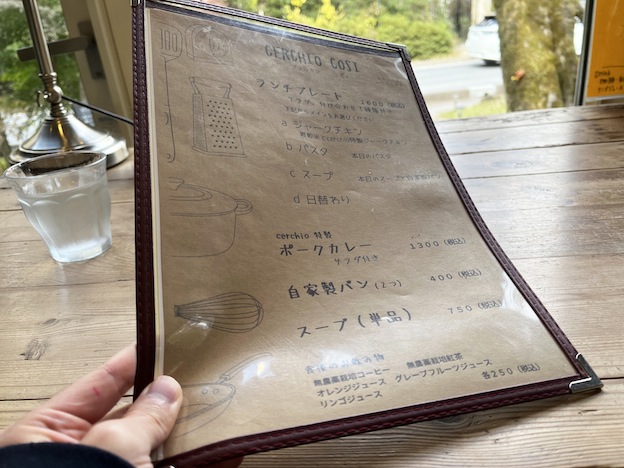 CERCHIO COSI
ランチプレート 1600(税込)
a ジャークチキン
b パスタ 本日のパスタ
c スープ 本日のスープと自家製パン
d 日替わり
cerchio 特製
ポークカレー 1300(税込)
サラダ付き
自家製パン(2つ) 400(税込)
スープ(単品) 750(税込)
食後のお飲み物
無農薬栽培コーヒー 無農薬栽培紅茶
オレンジジュース グレープフルーツジュース
リンゴジュース 各250(税込)